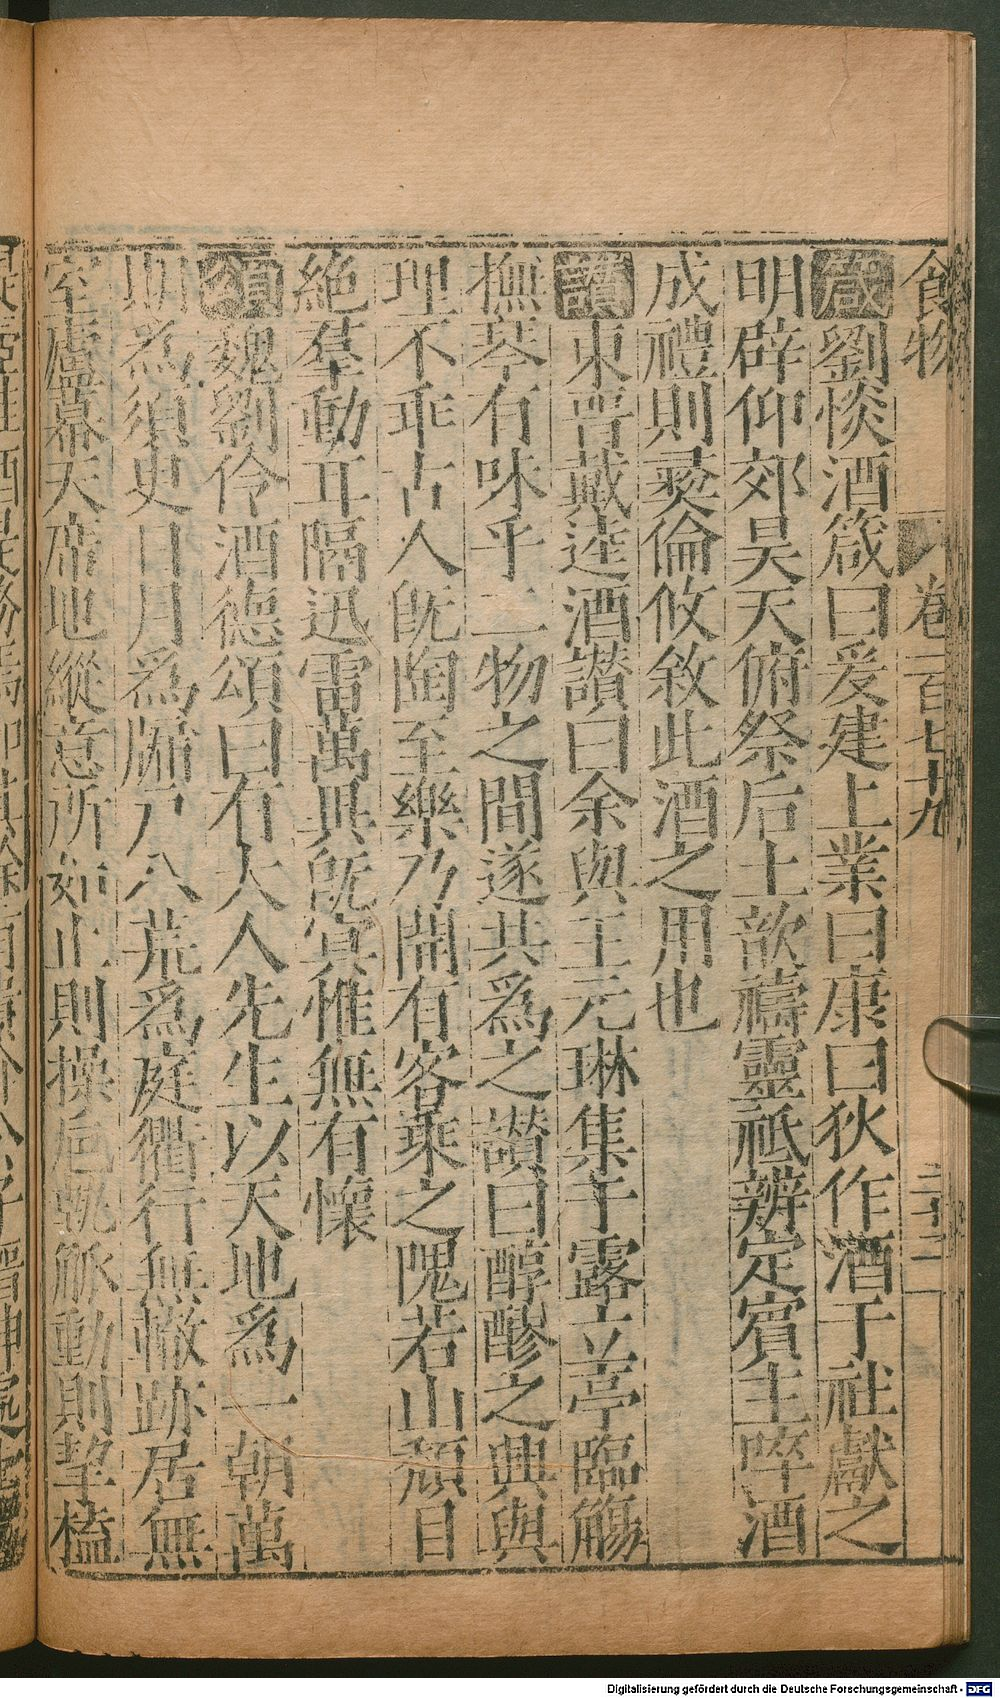 食物 卷一百七十九 三十二
箴劉惔酒箴曰爰建上業曰康曰狄作酒于社獻之
明辟仰郊昊天俯祭后土歆禱靈祗辨定賓主啐酒
成禮則彛倫攸敘此酒之用也
讚東晋戴逵酒讃曰余與王元琳集于露立亭臨觴
撫琴有味乎二物之間遂共爲之讃曰醇醪之興與
理不乖古人旣陶至樂乃開有客乘之隗若山頹目
絕羣動耳隔迅雷萬異旣冥惟無有懷
頌魏劉伶酒德頌曰有大人先生以天地爲一朝萬
期爲須臾日月爲牖戶八荒爲庭衢行無轍跡居無
室廬幕天席地縱意所如止則操巵執觚動則挈榼
Digitalisierung gefördert durch die Deutsche Forschungsgemeinschaft - DFG